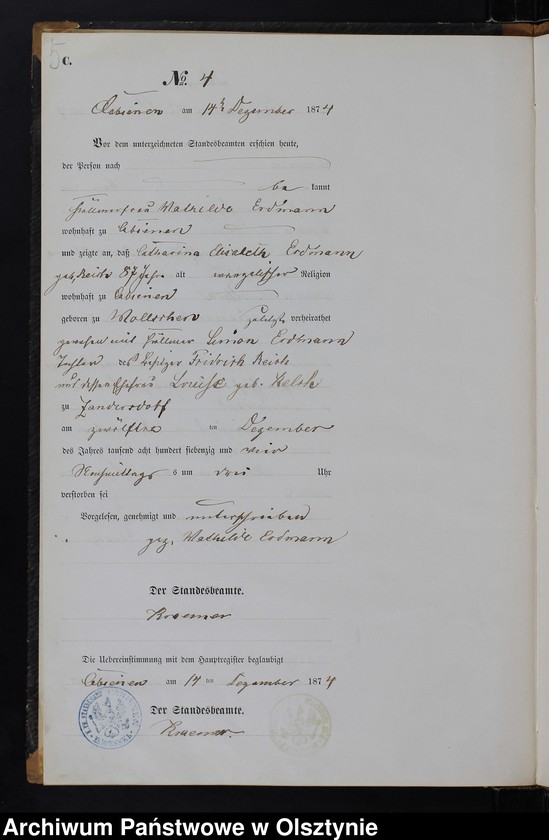 5
C.
No. 4
Absienen am 14ten Dezember 1874
Vor dem unterzeichneten Standesbeamten erschien heute,
der Person nach
be kannt
Mathilde Erdmann
wohnhaft zu Absienen
und zeigte an, daß Catharina Elisabeth Erdmann
geb. Reich 87 Jahr alt evangelischer Religion
wohnhaft zu Absienen
geboren zu zuletzt verheirathet
gewesen mit Simon Erdmann
Tochter des Besitzer Fridrich Reich
und dessen Ehefrau Louise geb.
zu Zandersdorf
am zwölften ten Dezember
des Jahres tausend acht hundert siebenzig und vier
Nachmittags um drei Uhr
verstorben sei
Vorgelesen, genehmigt und unterschrieben
gez. Mathilde Erdmann
Der Standesbeamte.
Kraemer
Die Uebereinstimmung mit dem Hauptregister beglaubigt
Absienen am 14 ten Dezember 1874
Der Standesbeamte.
Kraemer.
Archiwum Państwowe w Olsztynie